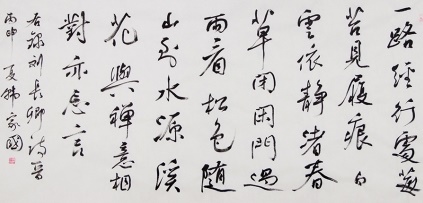 一路經行處莓
苔見履痕白
雲依靜渚春
草閉閑門過
雨看松色隨
山到水源溪
花與禪意相
對亦忘言
右錄刘長卿詩
丙申夏韩家國